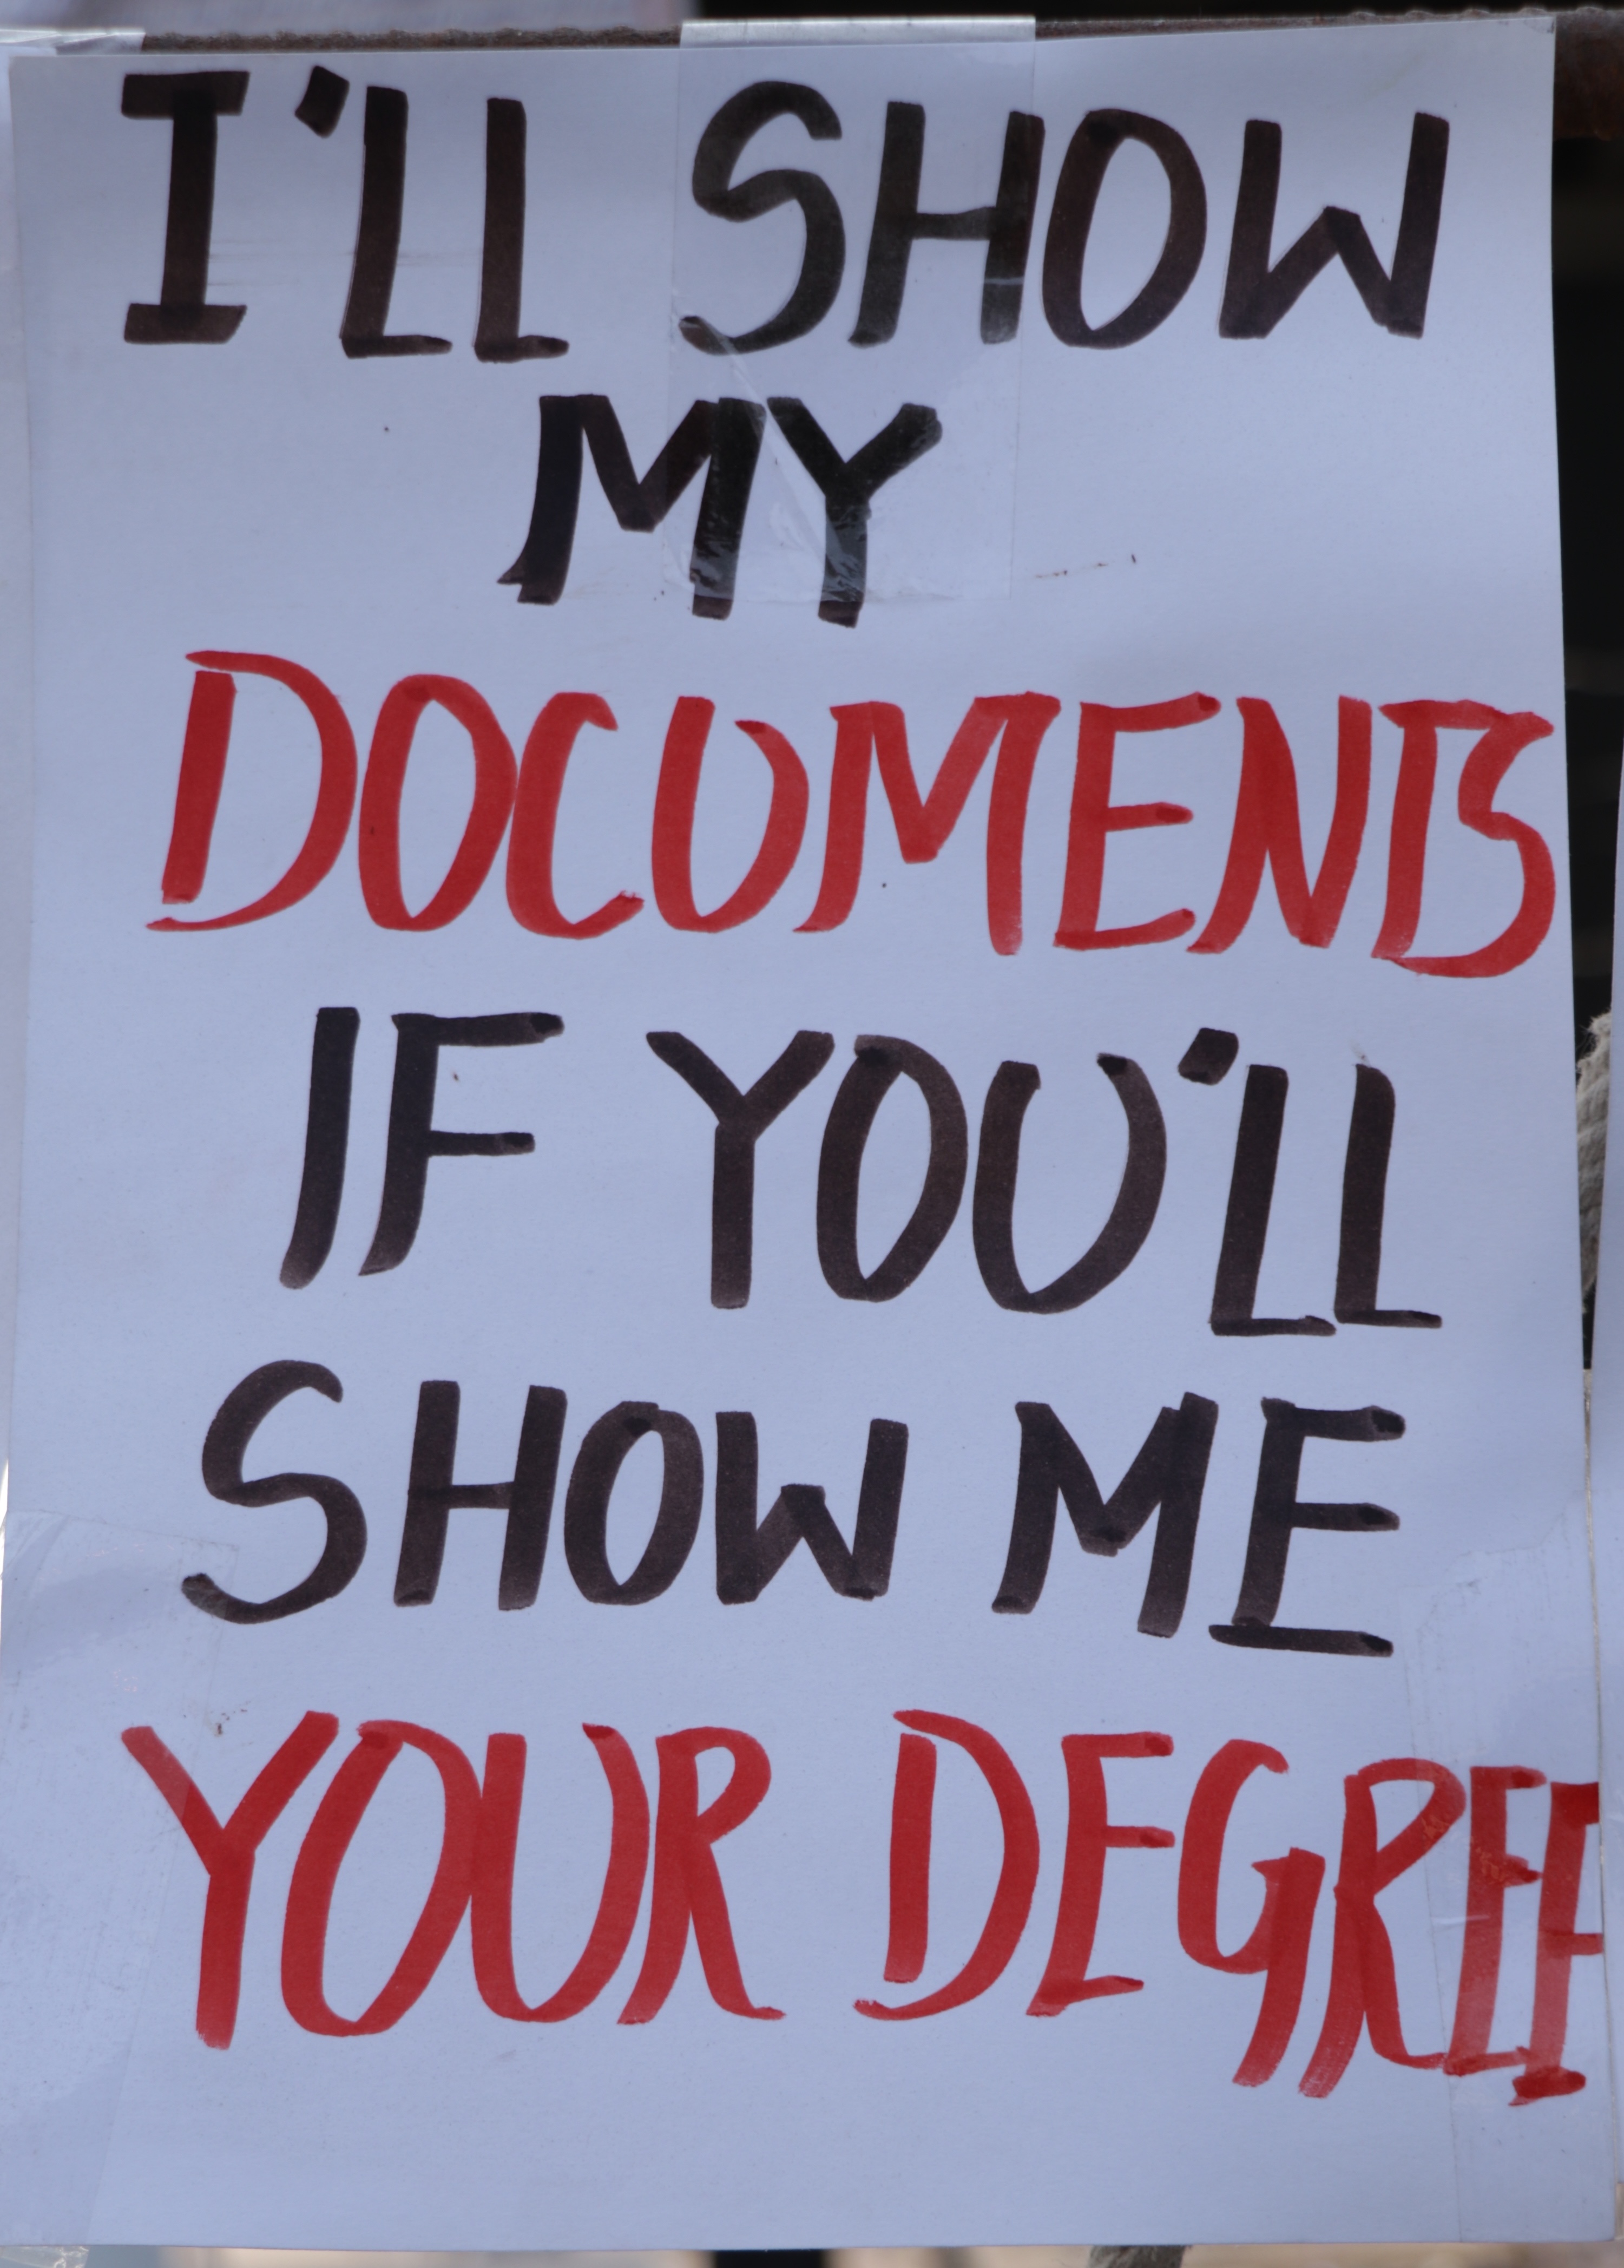 I'LL SHOW
MY
DOCUMENTS
IF YOU'LL
SHOW ME
YOUR DEGREE